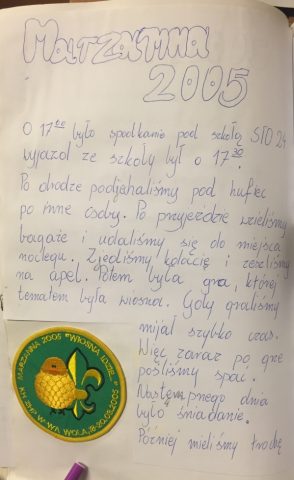 Marzanna
2005
O 17⁰⁰ było spotkanie pod szkołą STO 24
wyjazd ze szkoły był o 17³⁰.
Po drodze podjehaliśmy pod hufiec
po inne osoby. Po przyjeździe wzieliśmy
bagaże i udaliśmy się do miejsca
noclegu. Zjedliśmy kolację i zeszliśmy
na apel. Potem była gra, której
tematem była wiosna. Gdy graliśmy
mijał szybko czas.
Więc zaraz po grze
pośliśmy spać.
Następnego dnia
było śniadanie.
Później mieliśmy trochę
MARZANNA 2005 "WIOSNA IDZIE"
ZHP W-WA WOLA, 18-20.03.2005